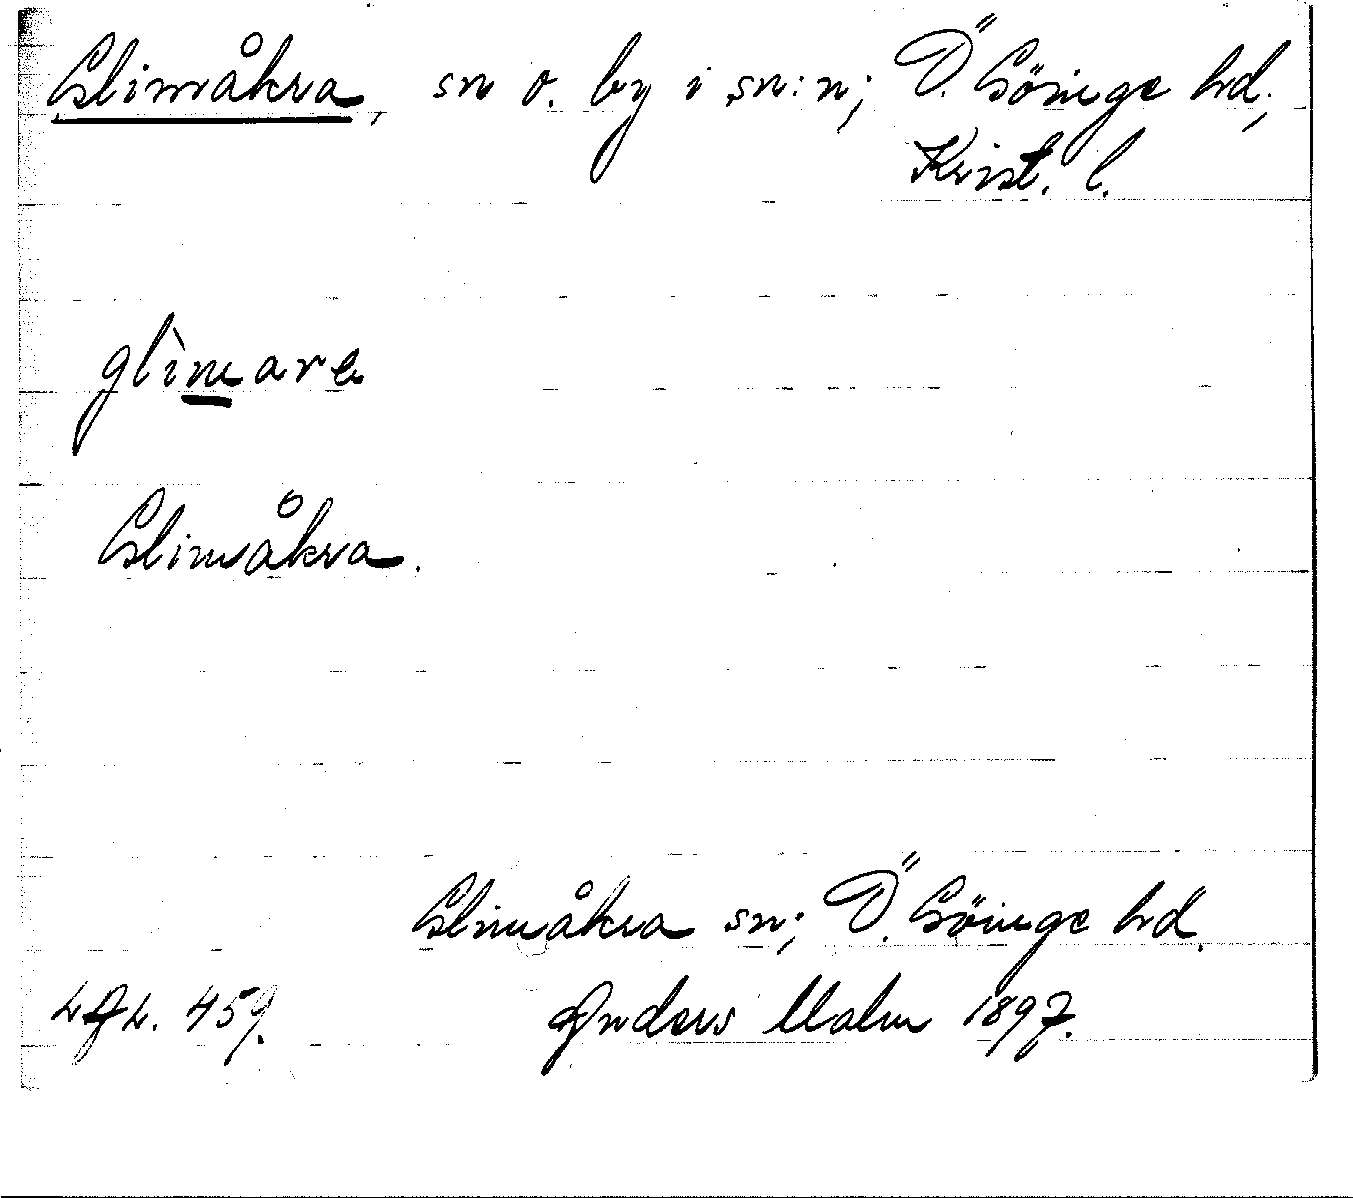 Glimåkra, sn o. by i sn:n; Ö. Göinge hd;
Krist. l.
glìmara
Glimåkra.
Glimåkra sn; Ö. Göinge hd.
459.
Anders Malm 1897.